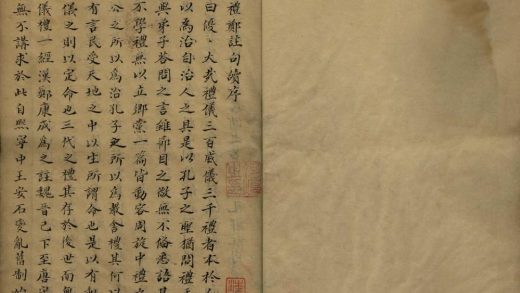 禮鄭註句讀序
曰優〻大哉禮儀三百威儀三千禮者本於
以為治自治人之具是以孔子之聖猶問禮
與弟子荅問之言雖節目之微無不僃悉語
不學禮無以立鄉黨一篇皆動容周旋中禮
公之所以為治孔子之所以為教舍禮其何以
有言民受天地之中以生所謂命也是以有
儀之則以定命也三代之禮其存於後世而無
儀禮一經漢鄭康成為之註魏晋已下至唐宋
無不講求於此自熙寧中王安石變亂舊制始